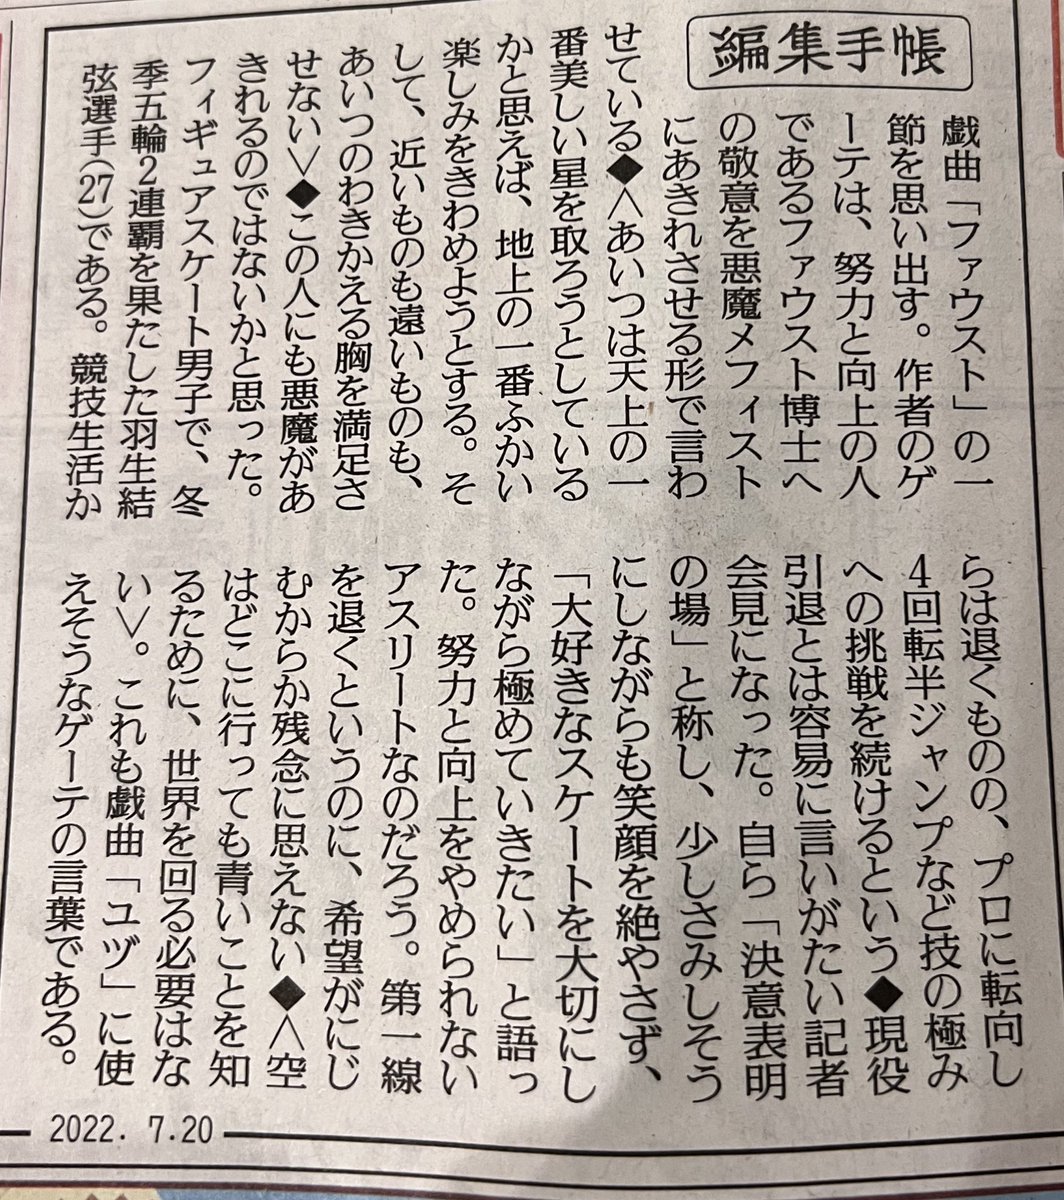 編集手帳
戯曲「ファウスト」の一
節を思い出す。作者のゲ
ーテは、努力と向上の人
であるファウスト博士へ
の敬意を悪魔メフィスト
にあきれさせる形で言わ
せている◆＜あいつは天上の一
番美しい星を取ろうとしている
かと思えば、地上の一番ふかい
楽しみをきわめようとする。そ
して、近いものも遠いものも、
あいつのわきかえる胸を満足さ
せない＞◆この人にも悪魔があ
きれるのではないかと思った。
フィギュアスケート男子で、冬
季五輪2連覇を果たした羽生結
弦選手(27)である。競技生活か
らは退くものの、プロに転向し
4回転半ジャンプなど技の極み
への挑戦を続けるという◆現役
引退とは容易に言いがたい記者
会見になった。自ら「決意表明
の場」と称し、少しさみしそう
にしながらも笑顔を絶やさず、
「大好きなスケートを大切にし
ながら極めていきたい」と語っ
た。努力と向上をやめられない
アスリートなのだろう。第一線
を退くというのに、希望がにじ
むからか残念に思えない◆＜空
はどこに行っても青いことを知
るために、世界を回る必要はな
い＞。これも戯曲「ユヅ」に使
えそうなゲーテの言葉である。
2022. 7.20